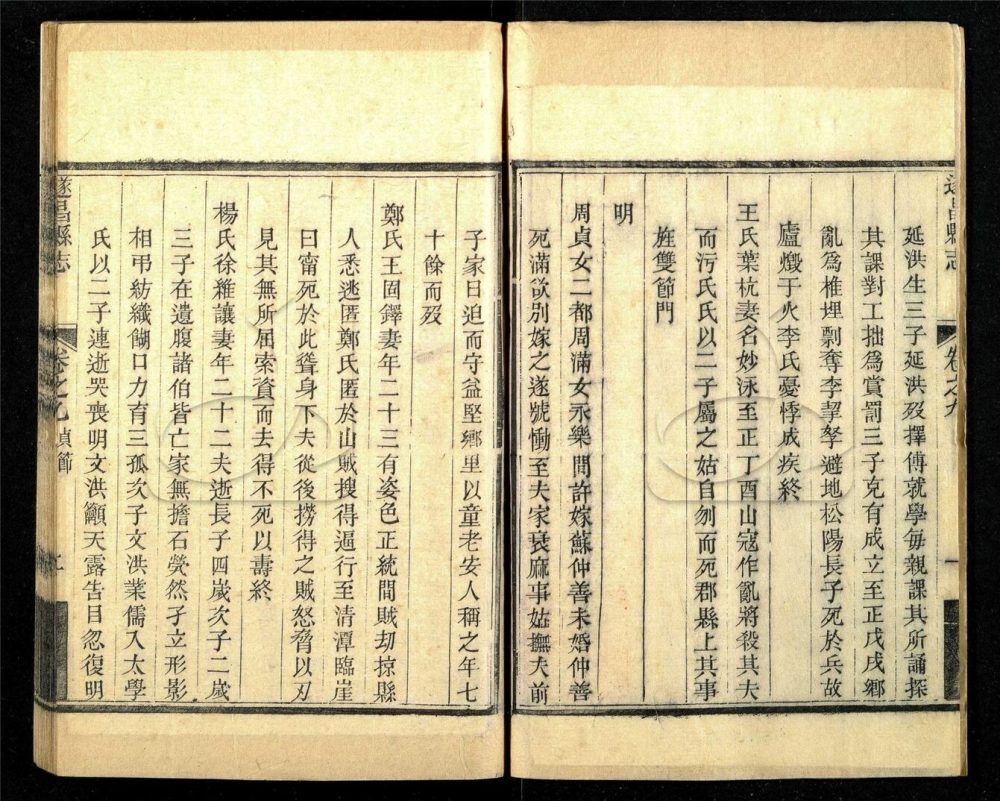 遂昌縣志
卷之九
一
延洪生三子延洪歿擇傅就學每親課其所誦探
其課對工拙爲賞罰三子克有成立至正戊戌鄉
亂爲椎埋剽奪李挈孥避地松陽長子死於兵故
廬燬于火李氏憂悸成疾終
王氏葉杭妻名妙泳至正丁酉山寇作亂將殺其夫
而污氏氏以二子屬之姑自刎而死郡縣上其事
旌雙節門
明
周貞女二都周滿女永樂間許嫁蘇仲善未婚仲善
死滿欲別嫁之遂號慟至夫家衰麻事姑撫夫前
子家日迫而守益堅鄉里以童老安人稱之年七
十餘而歿
鄭氏王固鐸妻年二十三有姿色正統間賊刧掠縣
人悉逃匿鄭氏匿於山賊搜得逼行至清潭臨崖
曰甯死於此聳身下夫從後撈得之賊怒脅以刃
見其無所屈索資而去得不死以壽終
楊氏徐維讓妻年二十二夫逝長子四歲次子二歲
三子在遺腹諸伯皆亡家無擔石煢然孑立形影
相弔紡織餬口力育三孤次子文洪業儒入太學
氏以二子連逝哭喪明文洪籲天露告目忽復明
遂昌縣志
卷之九 貞節